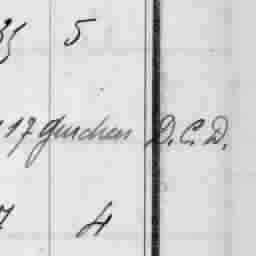 5
17 Gurchen D. C. D.
4